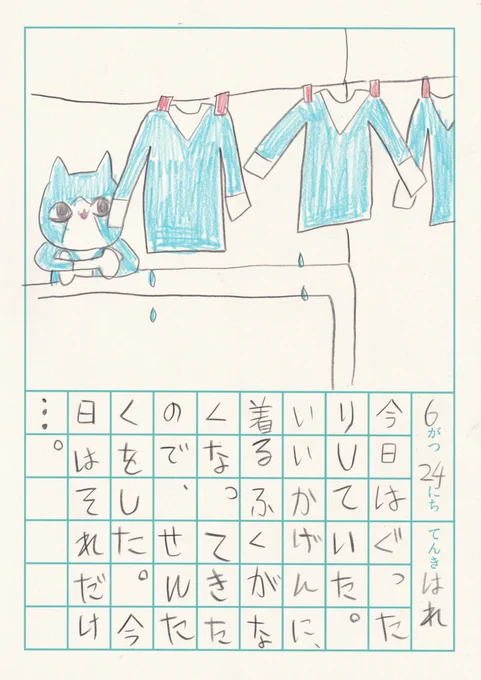 6がつ24にち てんきはれ
今日はぐった
りしていた。
いいかげんに、
着るふくがな
くなってきた
ので、せんた
くをした。今
日はそれだけ
…。